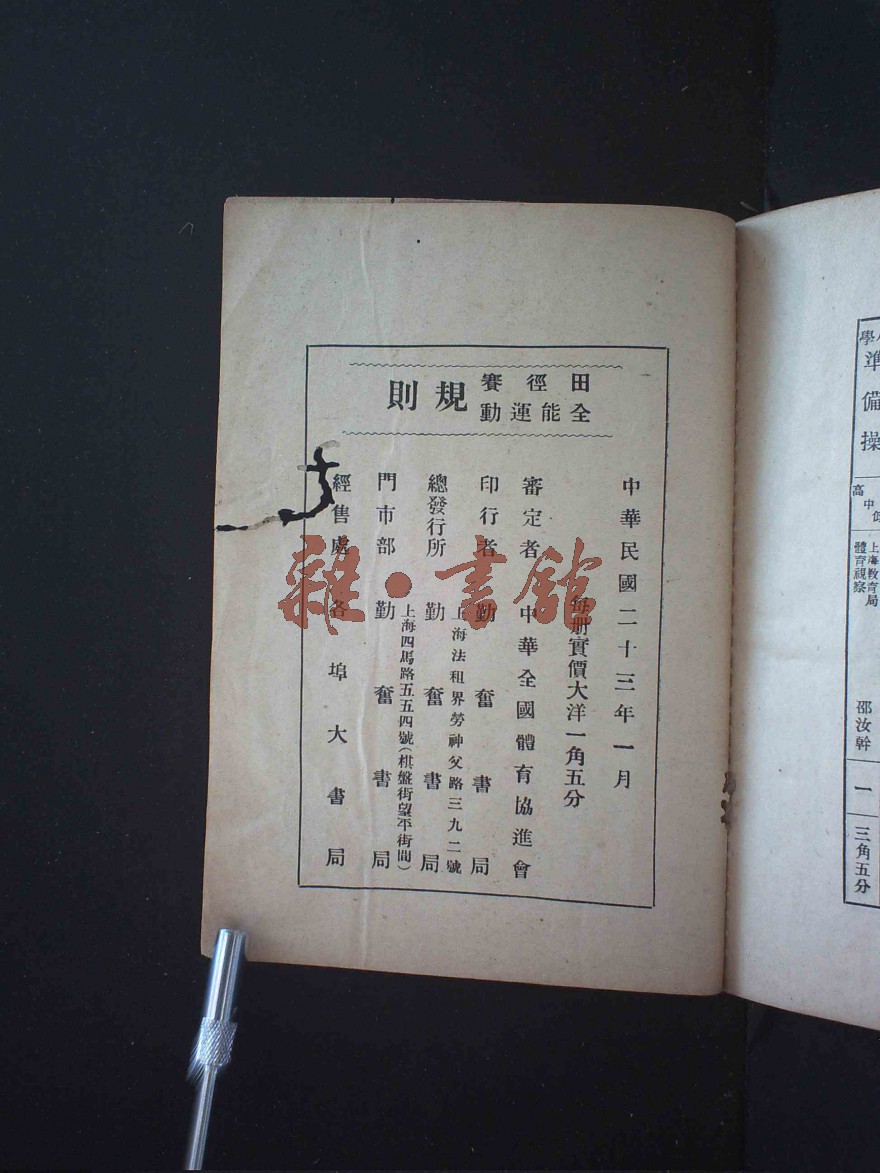 田徑賽
全能運動
規則
中華民國二十三年一月
每册實價大洋一角五分
審定者 中華全國體育協進會
印行者 勤奮書局
上海法租界勞神父路三九二號
總發行所 勤奮書局
上海四馬路五五四號(棋盤街望平街間)
門市部 勤奮書局
經售處 各埠大書局
雜·書館
準備操
高中
上海教育局
體育視察
邵汝幹
一
三角五分